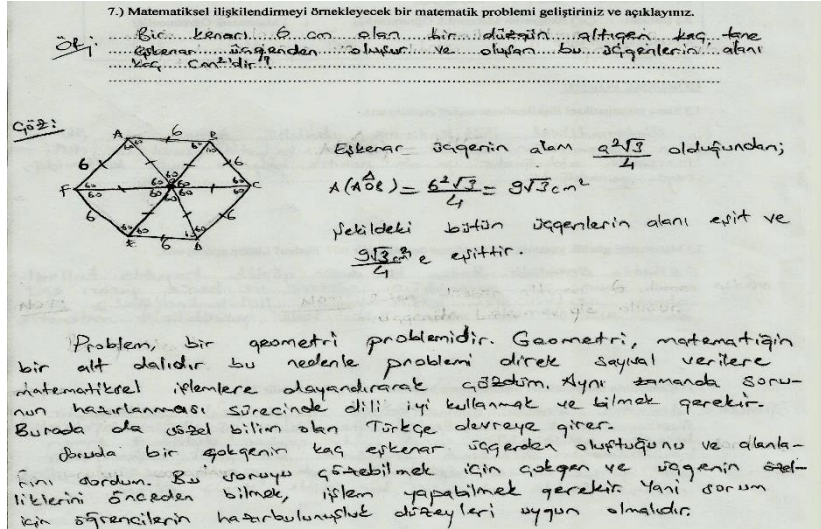 7.) Matematiksel ilişkilendirmeyi örnekleyecek bir matematik problemi geliştiriniz ve açıklayınız.
Ör; Bir kenarı 6 cm olan bir düzgün altıgen kaç tane
eşkenar üçgenden oluşur ve oluşan bu üçgenlerin alanı
kaç cm²'dir?
Çöz:
A 6 B
6 6
F C
6 6
E 6 D
60 60 60 60 60 60
Eşkenar üçgenin alanı a²√3/4 olduğundan;
A(AOB) = 6²√3/4 = 9√3 cm²
Şekildeki bütün üçgenlerin alanı eşit ve
9√3/4 cm² e eşittir.
Problem, bir geometri problemidir. Geometri, matematiğin
bir alt dalıdır bu nedenle problemi direk sayısal verilere
matematiksel işlemlere dayandırarak çözdüm. Aynı zamanda soru-
nun hazırlanması sürecinde dili iyi kullanmak ve bilmek gerekir.
Burada da sözel bilim olan Türkçe devreye girer.
Soruda bir çokgenin kaç eşkenar üçgenden oluştuğunu ve alanla-
rını sordum. Bu soruyu çözebilmek için çokgen ve üçgenin özel-
liklerini önceden bilmek, işlem yapabilmek gerekir. Yani sorum
için öğrencilerin hazırbulunuşluk düzeyleri uygun olmalıdır.